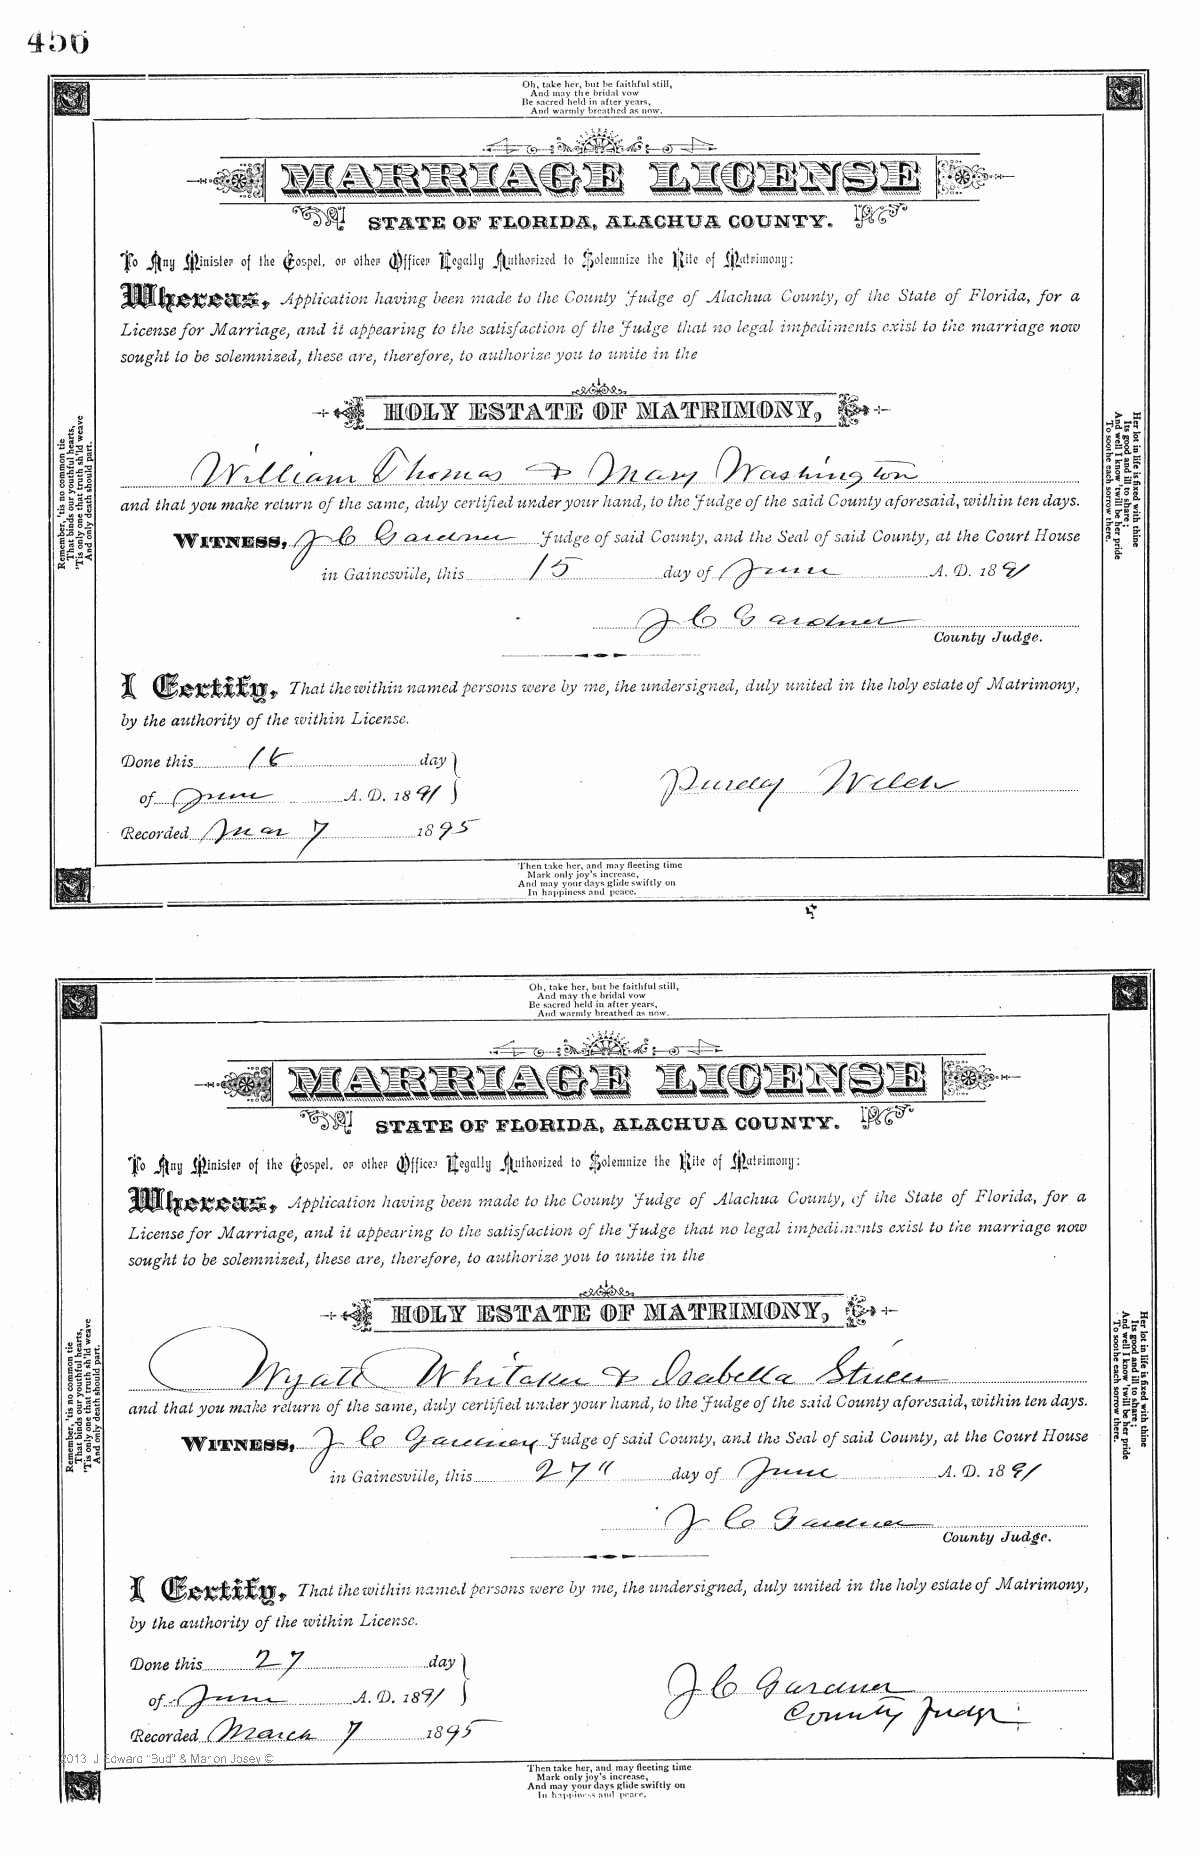 456
Oh, take her, but be faithful still,
And may the bridal vow
Be sacred held in after years,
And warmly breathed as now.
MARRIAGE LICENSE
STATE OF FLORIDA, ALACHUA COUNTY.
To Any Minister of the Gospel, or other Officer Legally Authorized to Solemnize the Rite of Matrimony:
Whereas, Application having been made to the County Judge of Alachua County, of the State of Florida, for a
License for Marriage, and it appearing to the satisfaction of the Judge that no legal impediments exist to the marriage now
sought to be solemnized, these are, therefore, to authorize you to unite in the
HOLY ESTATE OF MATRIMONY,
William Thomas & Mary Washington
and that you make return of the same, duly certified under your hand, to the Judge of the said County aforesaid, within ten days.
WITNESS, J C Gardner Judge of said County, and the Seal of said County, at the Court House
in Gainesville, this 15 day of June A. D. 1891
J C Gardner
County Judge.
I Certify, That the within named persons were by me, the undersigned, duly united in the holy estate of Matrimony,
by the authority of the within License.
Done this day
of June A. D. 1891
Purday Welch
Recorded Mar 7 1895
Remember, 'tis no common tie
That binds our youthful hearts,
'Tis only one that truth sh'ld weave
And only death should part.
Her lot in life is fixed with thine
Its good and ill to share;
And well I know 'twill be her pride
To soothe each sorrow there.
Then take her, and may fleeting time
Mark only joy's increase,
And may your days glide swiftly on
In happiness and peace.
Oh, take her, but be faithful still,
And may the bridal vow
Be sacred held in after years,
And warmly breathed as now.
MARRIAGE LICENSE
STATE OF FLORIDA, ALACHUA COUNTY.
To Any Minister of the Gospel, or other Officer Legally Authorized to Solemnize the Rite of Matrimony:
Whereas, Application having been made to the County Judge of Alachua County, of the State of Florida, for a
License for Marriage, and it appearing to the satisfaction of the Judge that no legal impediments exist to the marriage now
sought to be solemnized, these are, therefore, to authorize you to unite in the
HOLY ESTATE OF MATRIMONY,
Wyatt Whitaker & Isabella
and that you make return of the same, duly certified under your hand, to the Judge of the said County aforesaid, within ten days.
WITNESS, J C Gardner Judge of said County, and the Seal of said County, at the Court House
in Gainesville, this 27" day of June A. D. 1891
J C Gardner
County Judge.
I Certify, That the within named persons were by me, the undersigned, duly united in the holy estate of Matrimony,
by the authority of the within License.
Done this 27 day
of June A. D. 1891
J C Gardner
County Judge
Recorded March 7 1895
Remember, 'tis no common tie
That binds our youthful hearts,
'Tis only one that truth sh'ld weave
And only death should part.
Her lot in life is fixed with thine
Its good and ill to share;
And well I know 'twill be her pride
To soothe each sorrow there.
2013 J Edward "Bud" & Marion Josey ©
Then take her, and may fleeting time
Mark only joy's increase,
And may your days glide swiftly on
In happiness and peace.